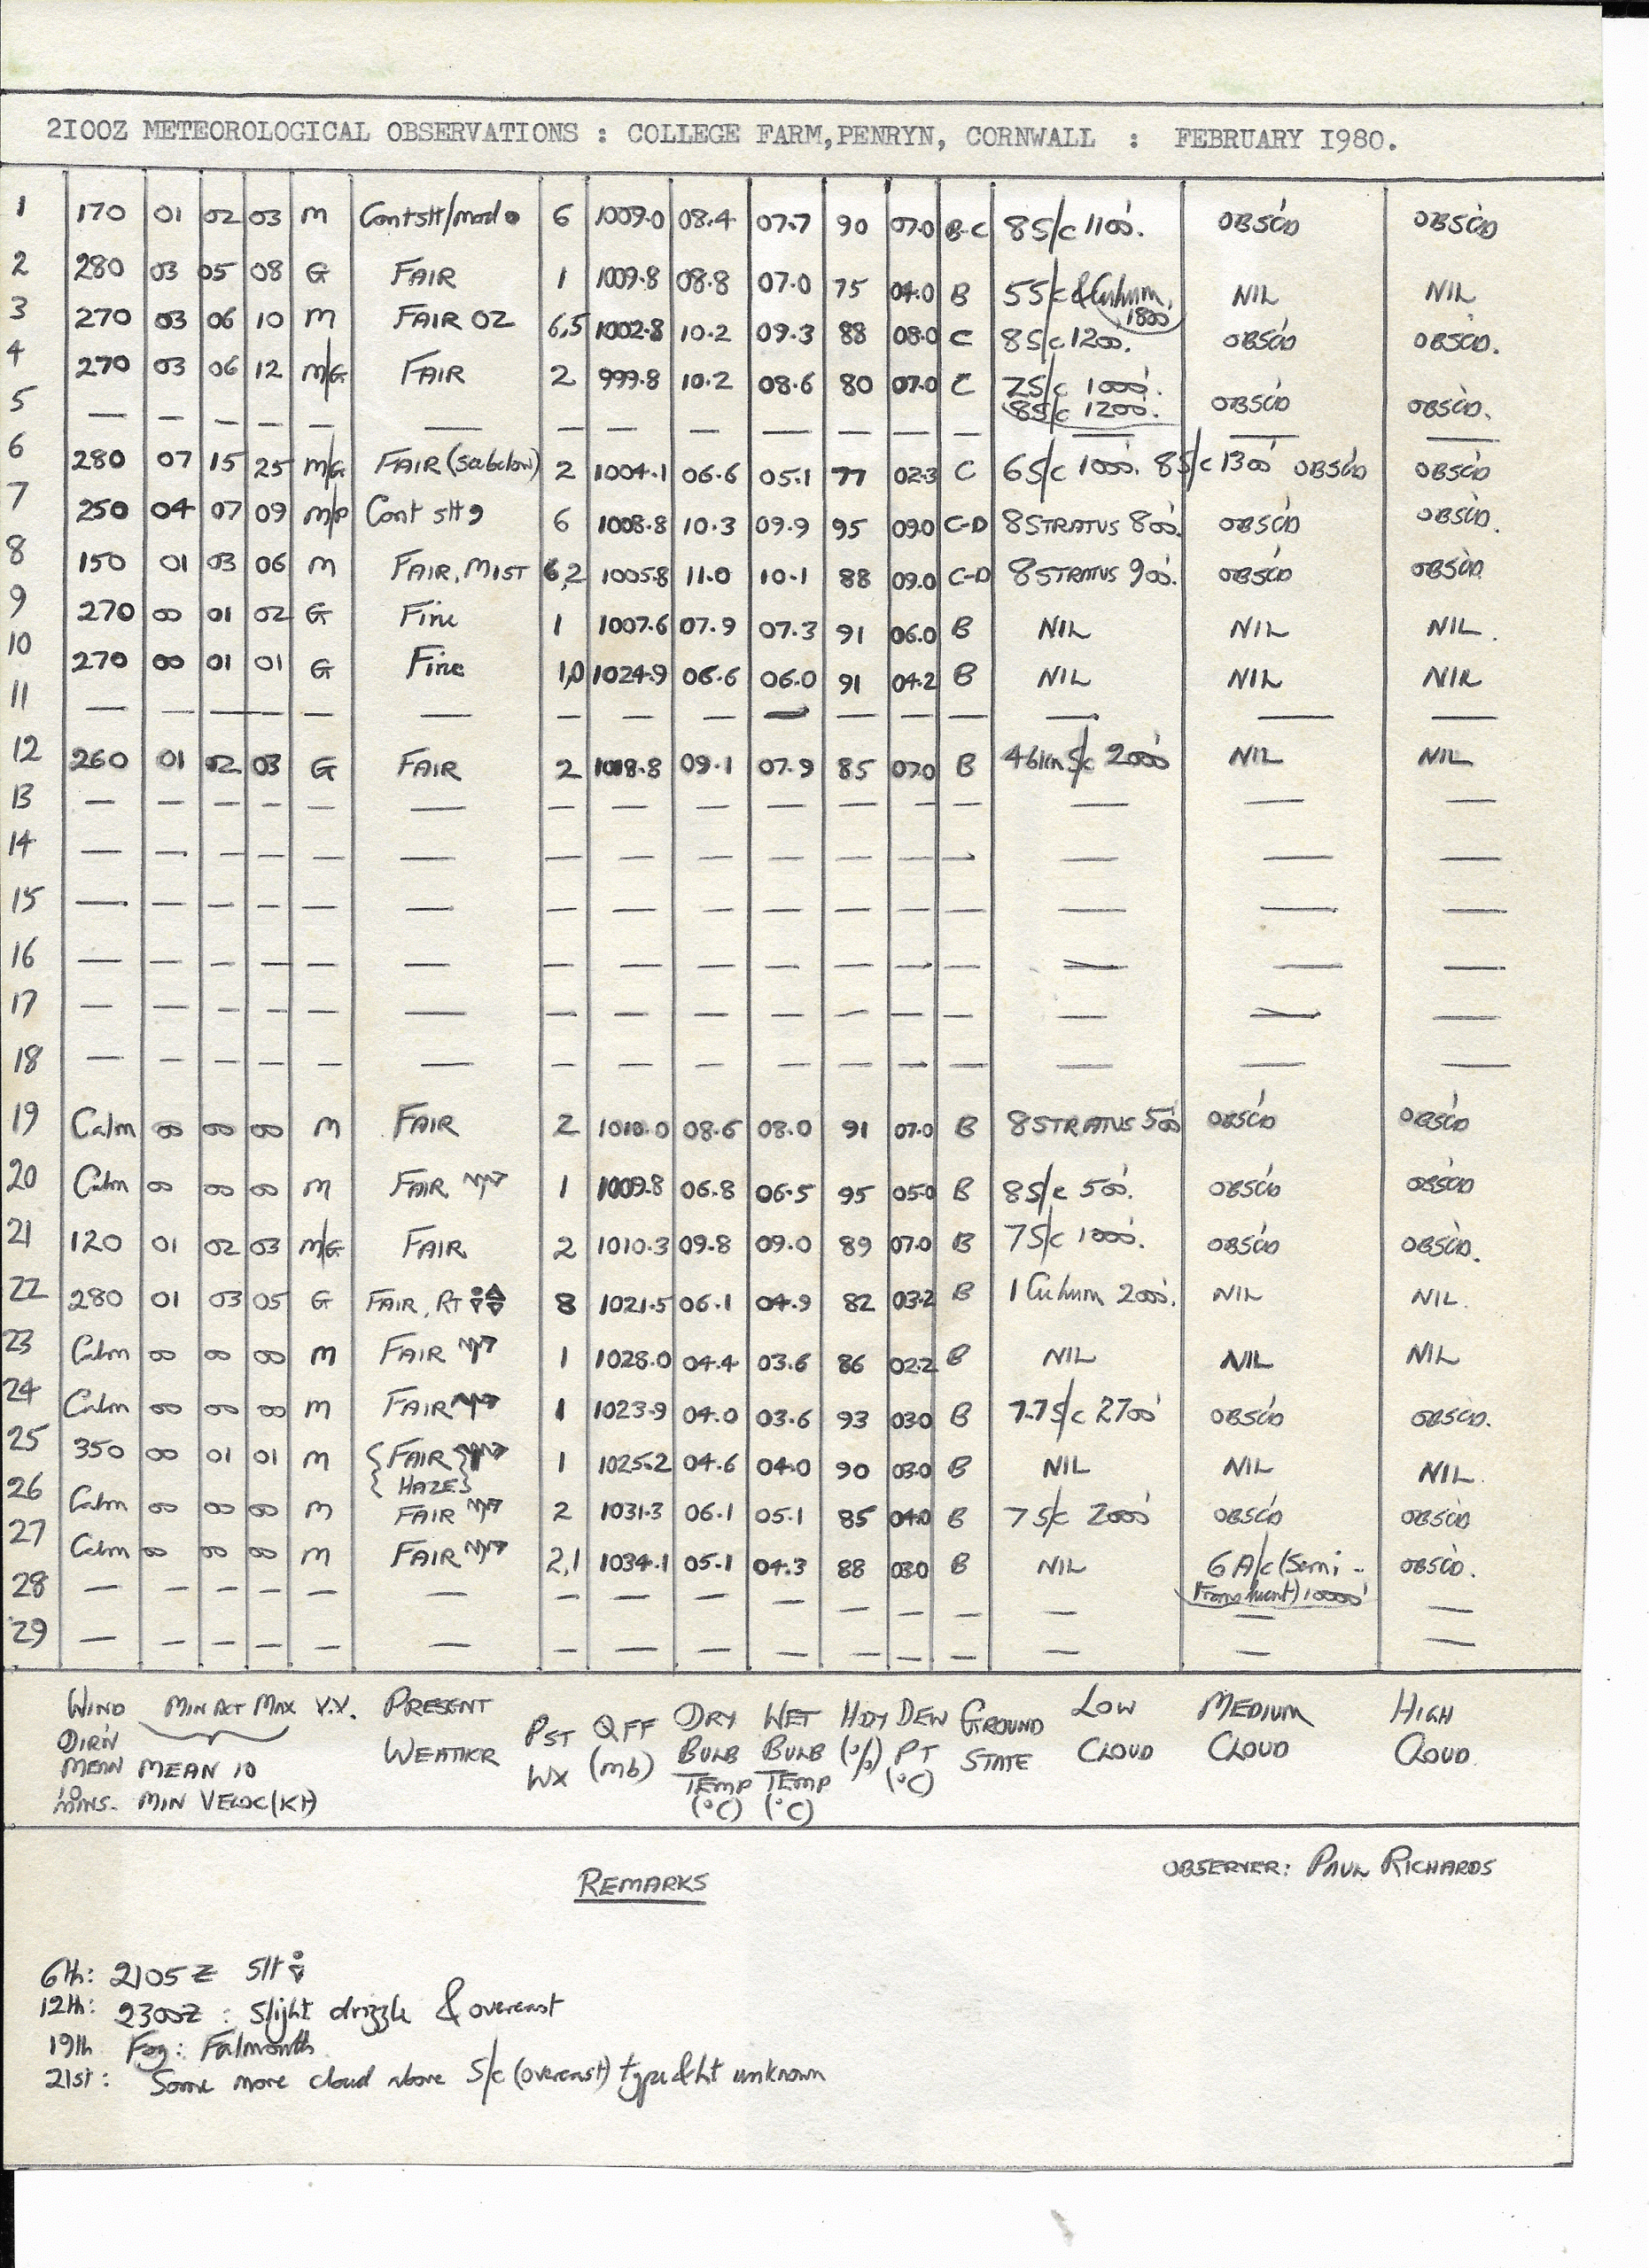 2I00Z METEOROLOGICAL OBSERVATIONS : COLLEGE FARM,PENRYN, CORNWALL : FEBRUARY I980.
1 170 01 02 03 M Cont slt/mod ● 6 1009.0 08.4 07.7 90 07.0 B-C 8 S/c 1100'. OBSC'D OBSC'D
2 280 03 05 08 G FAIR 1 1009.8 08.8 07.0 75 04.0 B 5 S/c & Cuhum, 1800' NIL NIL
3 270 03 06 10 M FAIR OZ 6,5 1002.8 10.2 09.3 88 08.0 C 8 S/c 1200'. OBSC'D OBSC'D.
4 270 03 06 12 M/G FAIR 2 999.8 10.2 08.6 80 07.0 C 7 S/c 1000'. 8 S/c 1200'. OBSC'D OBSC'D.
5 — — — — — — — — — — — — — — — —
6 280 07 15 25 M/G FAIR (see below) 2 1004.1 06.6 05.1 77 02.3 C 6 S/c 1000'. 8 S/c 1300' OBSC'D OBSC'D
7 250 04 07 09 M/P Cont slt 9 6 1008.8 10.3 09.9 95 09.0 C-D 8 STRATUS 800'. OBSC'D OBSC'D.
8 150 01 03 06 M FAIR, MIST 6,2 1005.8 11.0 10.1 88 09.0 C-D 8 STRATUS 900'. OBSC'D OBSC'D
9 270 00 01 02 G Fine 1 1007.6 07.9 07.3 91 06.0 B NIL NIL NIL.
10 270 00 01 01 G Fine 1,0 1024.9 06.6 06.0 91 04.2 B NIL NIL NIL
11 — — — — — — — — — — — — — — —
12 260 01 02 03 G FAIR 2 1018.8 09.1 07.9 85 07.0 B 4 S/c 2000' NIL NIL
13 — — — — — — — — — — — — — — — —
14 — — — — — — — — — — — — — — — —
15 — — — — — — — — — — — — — — — —
16 — — — — — — — — — — — — — — — —
17 — — — — — — — — — — — — — — — —
18 — — — — — — — — — — — — — — — —
19 Calm 00 00 00 M FAIR 2 1010.0 08.6 08.0 91 07.0 B 8 STRATUS 500' OBSC'D OBSC'D
20 Calm 00 00 00 M FAIR 1 1009.8 06.8 06.5 95 05.0 B 8 S/c 500'. OBSC'D OBSC'D
21 120 01 02 03 M/G FAIR 2 1010.3 09.8 09.0 89 07.0 B 7 S/c 1000'. OBSC'D OBSC'D.
22 280 01 03 05 G FAIR, Rt 8 1021.5 06.1 04.9 82 03.2 B 1 Cuhum 2000'. NIL NIL.
23 Calm 00 00 00 M FAIR 1 1028.0 04.4 03.6 86 02.2 B NIL NIL NIL
24 Calm 00 00 00 M FAIR 1 1023.9 04.0 03.6 93 03.0 B 7.7 S/c 2700' OBSC'D OBSC'D.
25 350 00 01 01 M {FAIR} {HAZE} 1 1025.2 04.6 04.0 90 03.0 B NIL NIL NIL.
26 Calm 00 00 00 M FAIR 2 1031.3 06.1 05.1 85 04.0 B 7 S/c 2000' OBSC'D OBSC'D
27 Calm 00 00 00 M FAIR 2,1 1034.1 05.1 04.3 88 03.0 B NIL 6 A/c (Semi-Translucent) 10000' OBSC'D.
28 — — — — — — — — — — — — — — — —
29 — — — — — — — — — — — — — — — —
WIND MIN ACT MAX V.V. PRESENT PST QFF DRY WET H'DY DEW GROUND LOW MEDIUM HIGH
DIR'N WEATHER WX (mb) BULB BULB (%) PT STATE CLOUD CLOUD CLOUD.
MEAN MEAN 10 TEMP TEMP (°C)
10 MINS. MIN VELOC (KT) (°C) (°C)
OBSERVER: PAUL RICHARDS
REMARKS
6th: 2105Z Slt
12th: 2300Z : Slight drizzle & overcast
19th Fog: Falmouth.
21st: Some more cloud above S/c (overcast) type & ht unknown